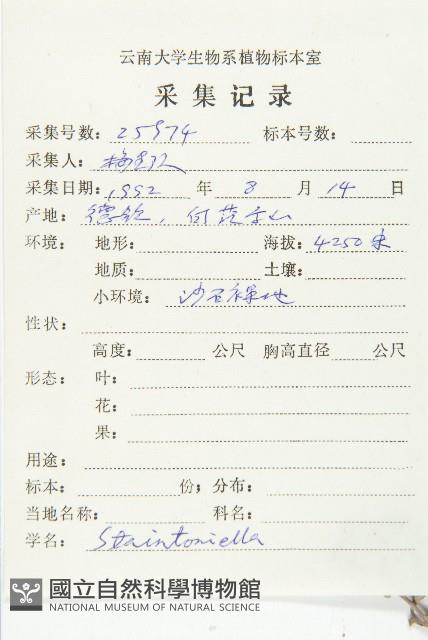 云南大学生物系植物标本室
采集记录
采集号数: 25974 标本号数:
采集人:
采集日期: 1992 年 8 月 14 日
产地: 德钦,
环境: 地形: 海拔: 4250米
地质: 土壤:
小环境: 沙石裸地
性状:
高度: 公尺 胸高直径 公尺
形态: 叶:
花:
果:
用途:
标本: 份; 分布:
当地名称: 科名:
学名: Staintoniella
國立自然科學博物館
NATIONAL MUSEUM OF NATURAL SCIENCE